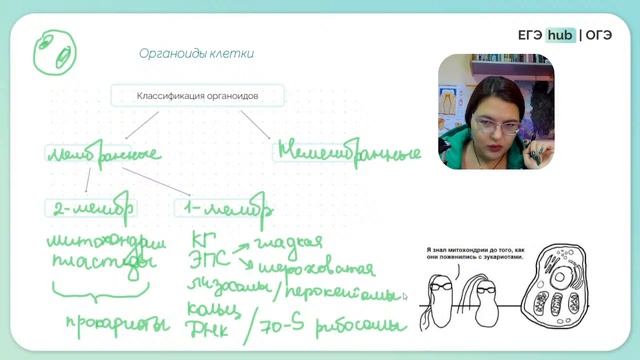 ЕГЭ hub | ОГЭ
Органоиды клетки
Классификация органоидов
Мембранные
Немембранные
2-мембр
1-мембр
митохондрии
пластиды
прокариоты
КГ
ЭПС
гладкая
шероховатая
лизосомы/пероксисомы
кольц
ДНК / 70-S рибосомы
Я знал митохондрии до того, как
они поженились с эукариотами.